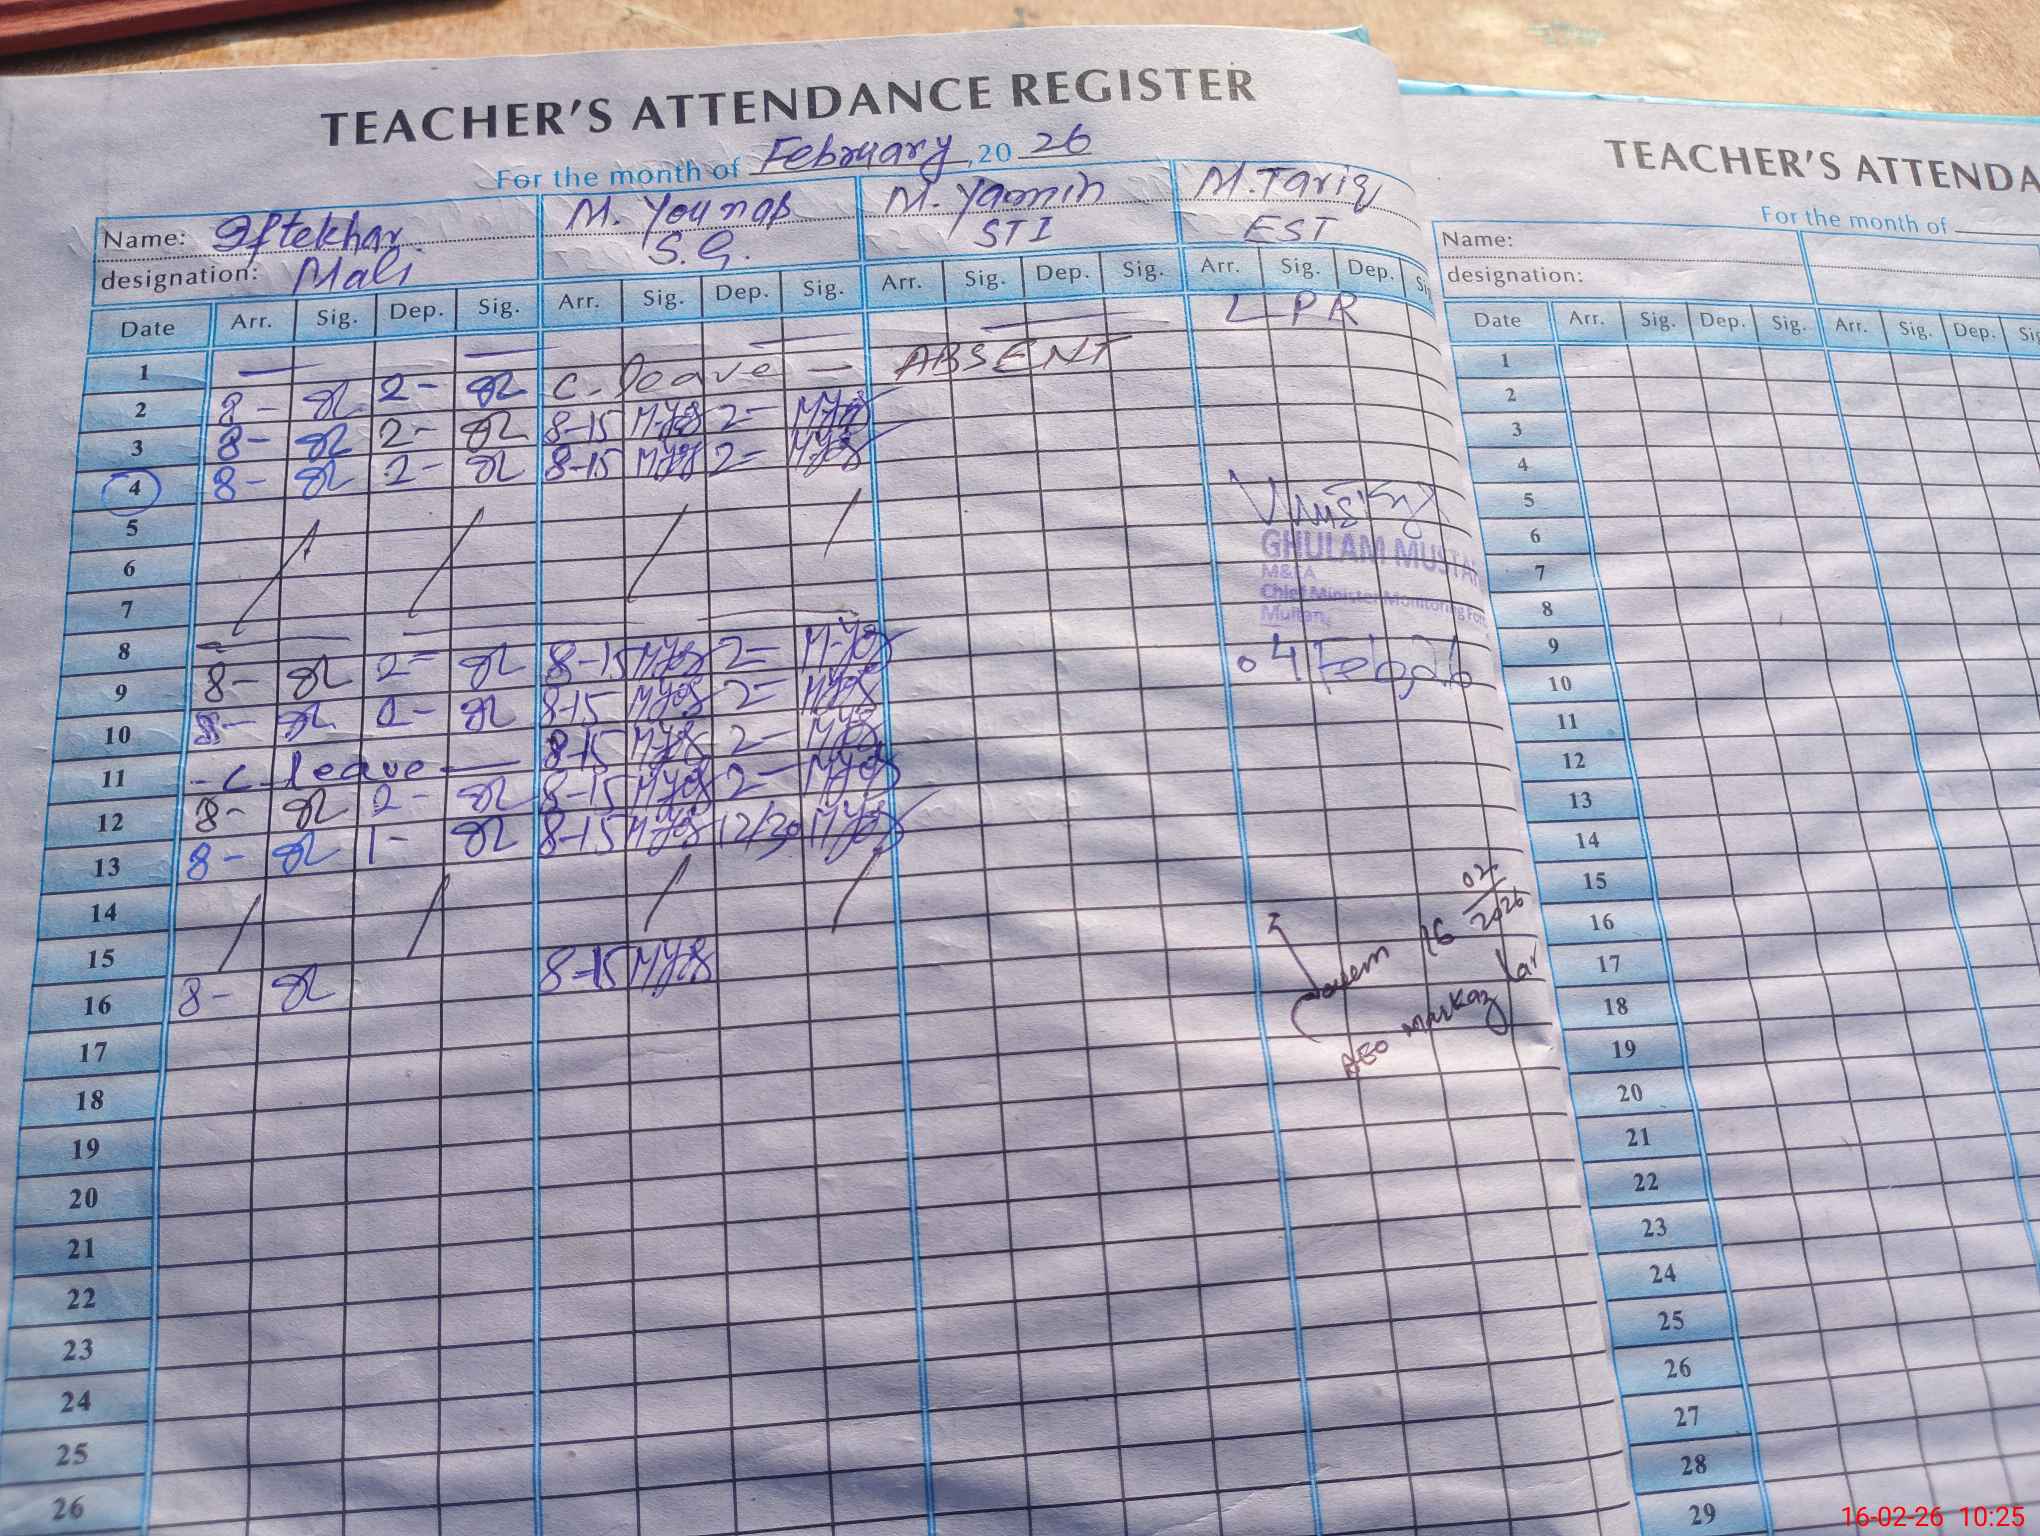 TEACHER'S ATTENDANCE REGISTER
For the month of February, 20 26
Name: Iftekhar M. Younas M. Yamin M. Tariq
designation: Mali S.G. STI EST
Date Arr. Sig. Dep. Sig. Arr. Sig. Dep. Sig. Arr. Sig. Dep. Sig. Arr. Sig. Dep.
LPR
1 — — — —
2 8- 2- C-leave — ABSENT
3 8- 2- 8-15 2=
4 8- 2- 8-15 2=
5
6
7
8
9 8- 2= 8-15 2=
10 8- 2- 8-15 2=
11 - C-leave — 8-15 2-
12 8- 2- 8-15 2-
13 8- 1- 8-15 12/30
14
15
16 8- 8-15
17
18
19
20
21
22
23
24
25
26
GHULAM
M&EA
Chief Minister Monitoring
Multan.
04 Feb, 26
16 02/2026
AEO Markaz
TEACHER'S ATTENDA
For the month of
Name:
designation:
Date Arr. Sig. Dep. Sig. Arr. Sig. Dep.
1
2
3
4
5
6
7
8
9
10
11
12
13
14
15
16
17
18
19
20
21
22
23
24
25
26
27
28
29
16-02-26 10:25